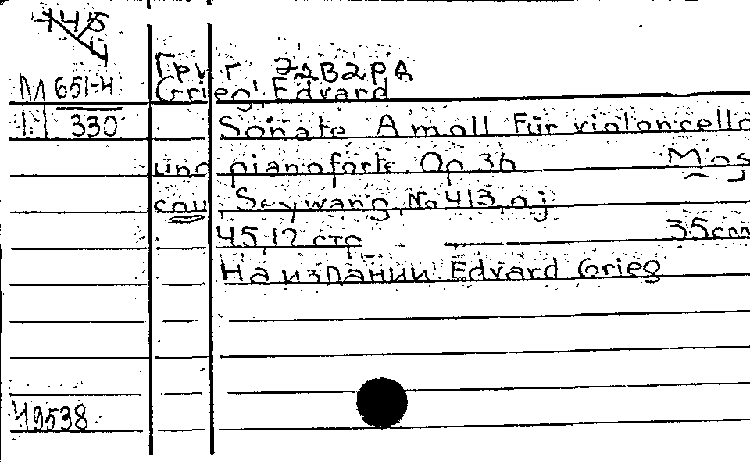 145
4
Григ Эдвард
М 651-4
Grieg, Edvard
1. 330
Sonate A moll Für violoncello
und pianoforte. Op 36 Mos
cou, Seywang, No 413,
45,12 стр 35cm
На издании Edvard Grieg
49538